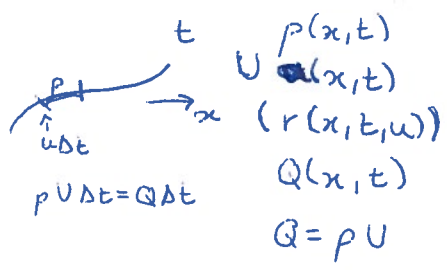 t
ρ
x
uΔt
ρUΔt=QΔt
ρ(x,t)
U (x,t)
(r(x,t,u))
Q(x,t)
Q=ρU